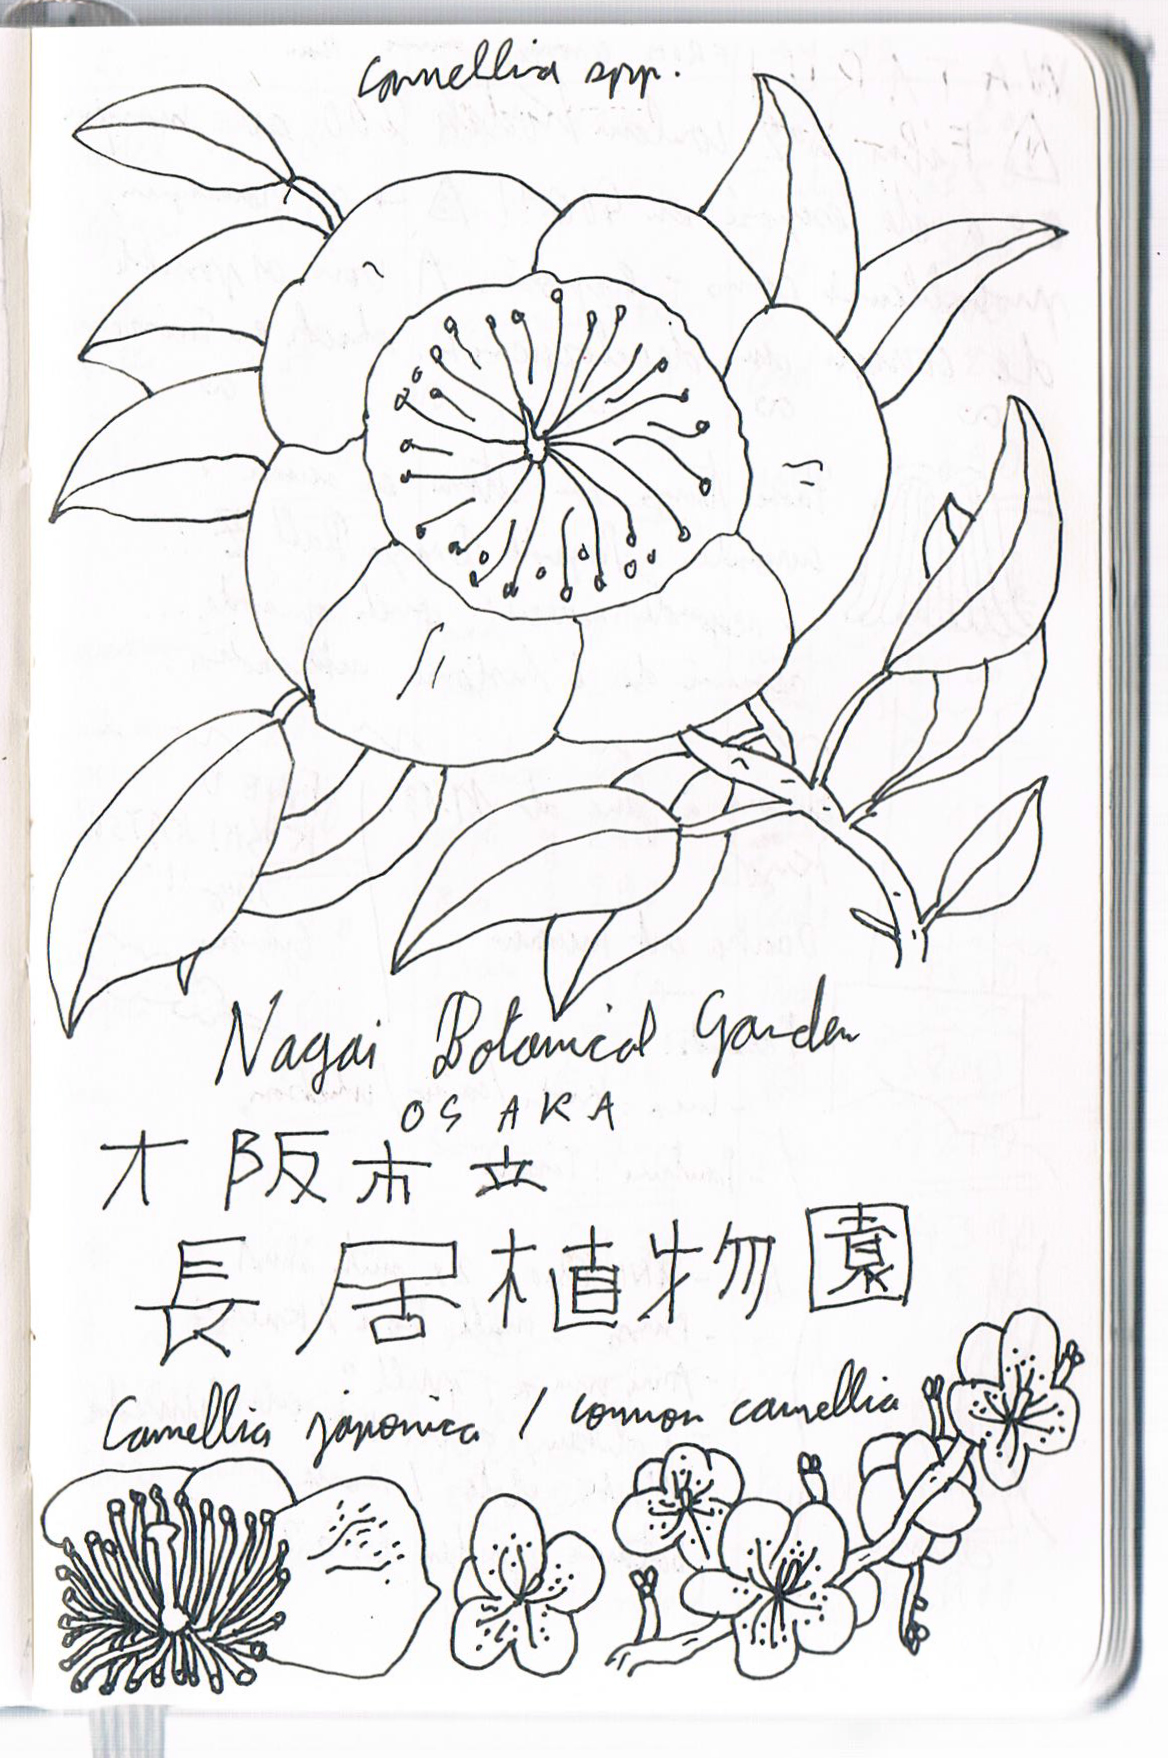 Camellia spp.
Nagai Botanical Garden
OSAKA
大阪市立
長居植物園
Camellia japonica / common camellia